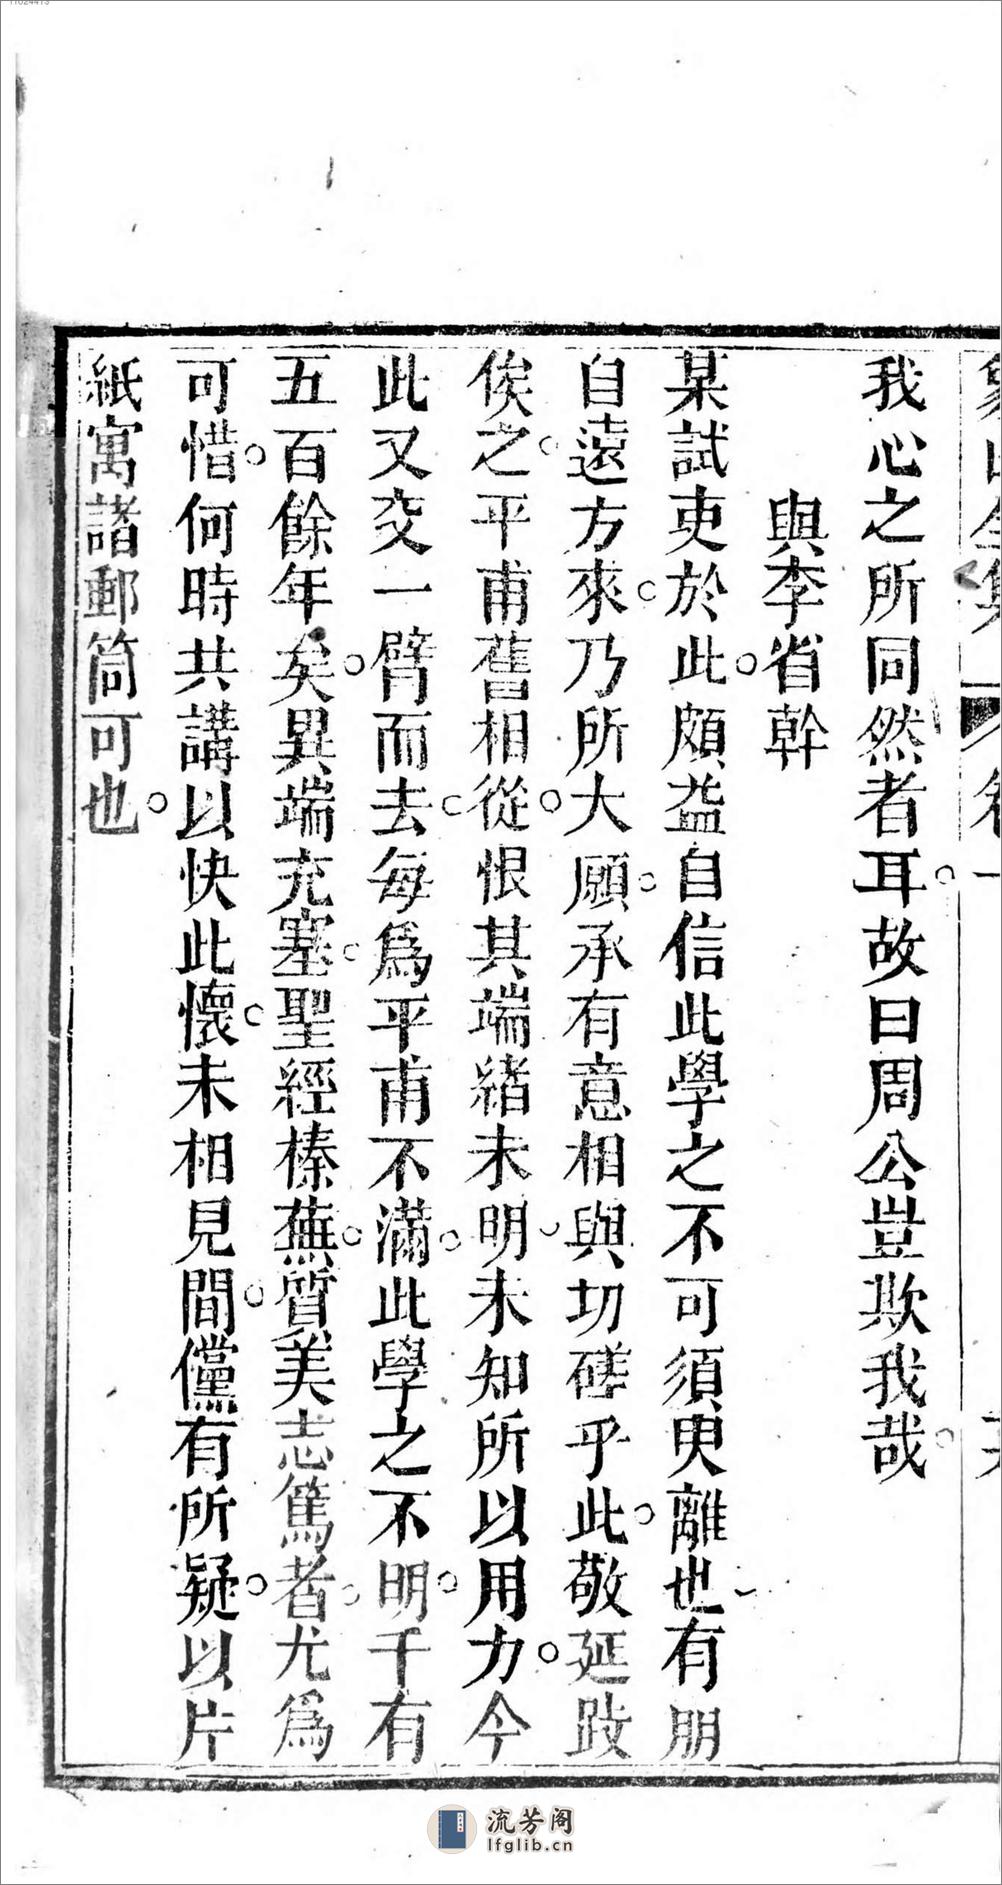 我心之所同然者耳故曰周公豈欺我哉
與李省幹
某試吏於此頗益自信此學之不可須臾離也有朋
自遠方來乃所大願承有意相與切磋乎此敬延跂
俟之平甫舊相從恨其端緒未明未知所以用力今
此又交一臂而去每爲平甫不滿此學之不明千有
五百餘年矣異端充塞聖經榛蕪質美志篤者尤爲
可惜何時共講以快此懷未相見間儻有所疑以片
紙寓諸郵筒可也
流芳阁
lfglib.cn